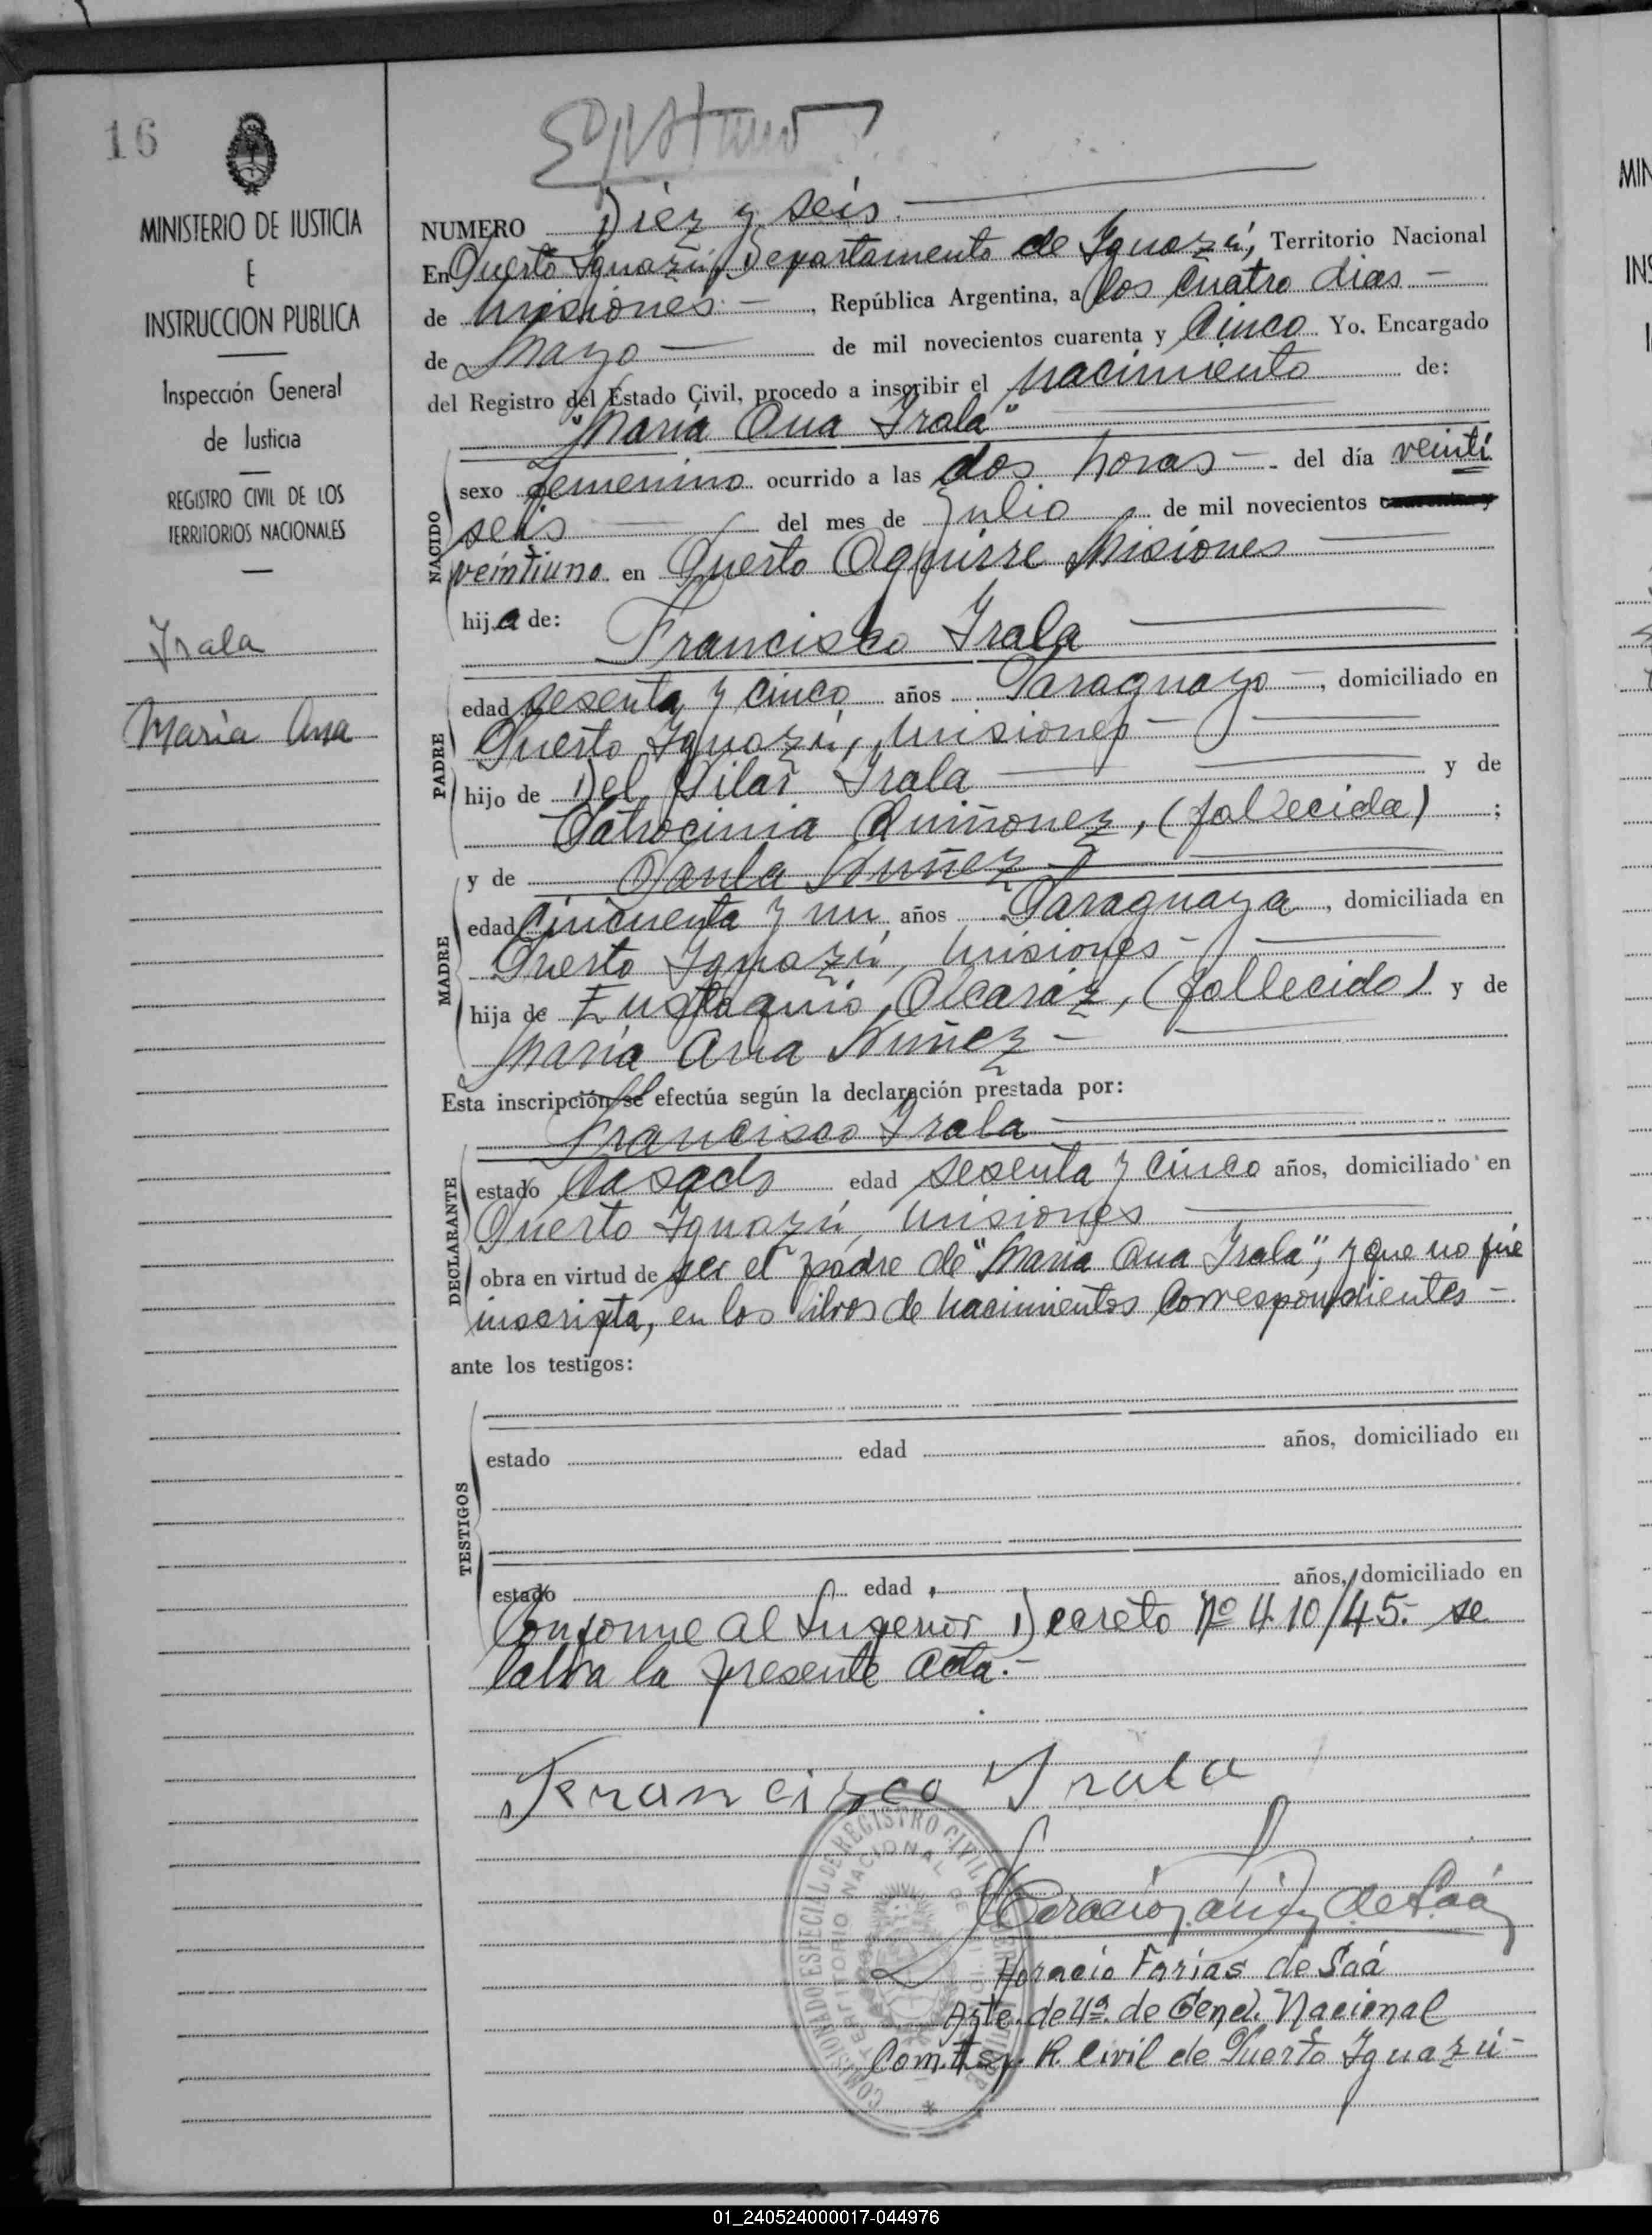 16
MINISTERIO DE JUSTICIA
E
INSTRUCCION PUBLICA
Inspección General
de Justicia
REGISTRO CIVIL DE LOS
TERRITORIOS NACIONALES
Irala
Maria Ana
NUMERO Diez y seis.
En Puerto Iguazú, Departamento de Iguazú, Territorio Nacional
de Misiones - , República Argentina, a los cuatro dias -
de Mayo - de mil novecientos cuarenta y Cinco Yo, Encargado
del Registro del Estado Civil, procedo a inscribir el nacimiento de:
"Maria Ana Irala"
NACIDO
sexo femenino ocurrido a las dos horas - del día veinti
seis del mes de Julio de mil novecientos
veintiuno en Puerto Aguirre Misiones
hija de: Francisco Irala
PADRE
edad sesenta y cinco años Paraguayo -, domiciliado en
Puerto Iguazú, Misiones -
hijo de Del Pilar Irala y de
Patrocinia Quiñonez, (fallecida) ;
MADRE
y de Paula Nuñez
edad Cincuenta y un años Paraguaya, domiciliada en
Puerto Iguazú, Misiones -
hija de Eustaquio Alcaráz, (fallecido) y de
Maria Ana Nuñez -
Esta inscripción se efectúa según la declaración prestada por:
Francisco Irala
DECLARANTE
estado Casado edad sesenta y cinco años, domiciliado en
Puerto Iguazú, Misiones
obra en virtud de ser el padre de "Maria Ana Irala", y que no fué
inscripta, en los libros de nacimientos Correspondientes -
ante los testigos:
TESTIGOS
estado edad años, domiciliado en
estado edad años, domiciliado en
Conforme al Superior Decreto Nº 410/45.- se
labra la presente acta.-
Francisco Irala
Horacio Farias de Saá
Horacio Farias de Saá
Ayte. de 4ª. de Gend. Nacional
Com. Esp. R. Civil de Puerto Iguazú -
COMISIONADO ESPECIAL DE REGISTRO CIVIL
TERRITORIO NACIONAL DE
01_240524000017-044976